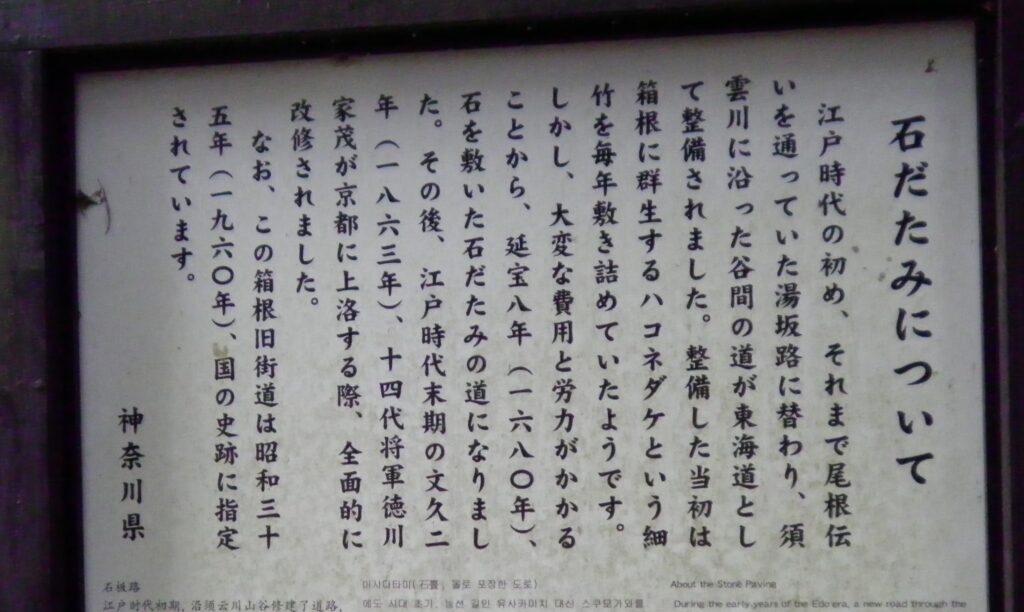 石だたみについて
江戸時代の初め、それまで尾根伝
いを通っていた湯坂路に替わり、須
雲川に沿った谷間の道が東海道とし
て整備されました。整備した当初は
箱根に群生するハコネダケという細
竹を毎年敷き詰めていたようです。
しかし、大変な費用と労力がかかる
ことから、延宝八年(一六八〇年)、
石を敷いた石だたみの道になりまし
た。その後、江戸時代末期の文久二
年(一八六三年)、十四代将軍徳川
家茂が京都に上洛する際、全面的に
改修されました。
なお、この箱根旧街道は昭和三十
五年(一九六〇年)、国の史跡に指定
されています。
神奈川県
石板路
江户时代初期，沿须云川山谷修建了道路，
이시다타미(石疊, 돌로 포장한 도로)
에도 시대 초기, 능선 길인 유사카미치 대신 스쿠모가와를
About the Stone Paving
During the early years of the Edo era, a new road through the